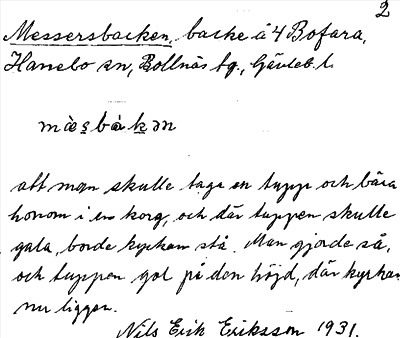 2
Messersbacken, backe å 4 Bofara,
Hanebo sn, Bollnäs tg., Gävleb. l.
mὰsbàkən
att man skulle taga en tupp och bära
honom i en korg, och där tuppen skulle
gala, borde kyrkan stå. Man gjorde så,
och tuppen gol på den höjd, där kyrkan
nu ligger.
Nils Erik Eriksson 1931.